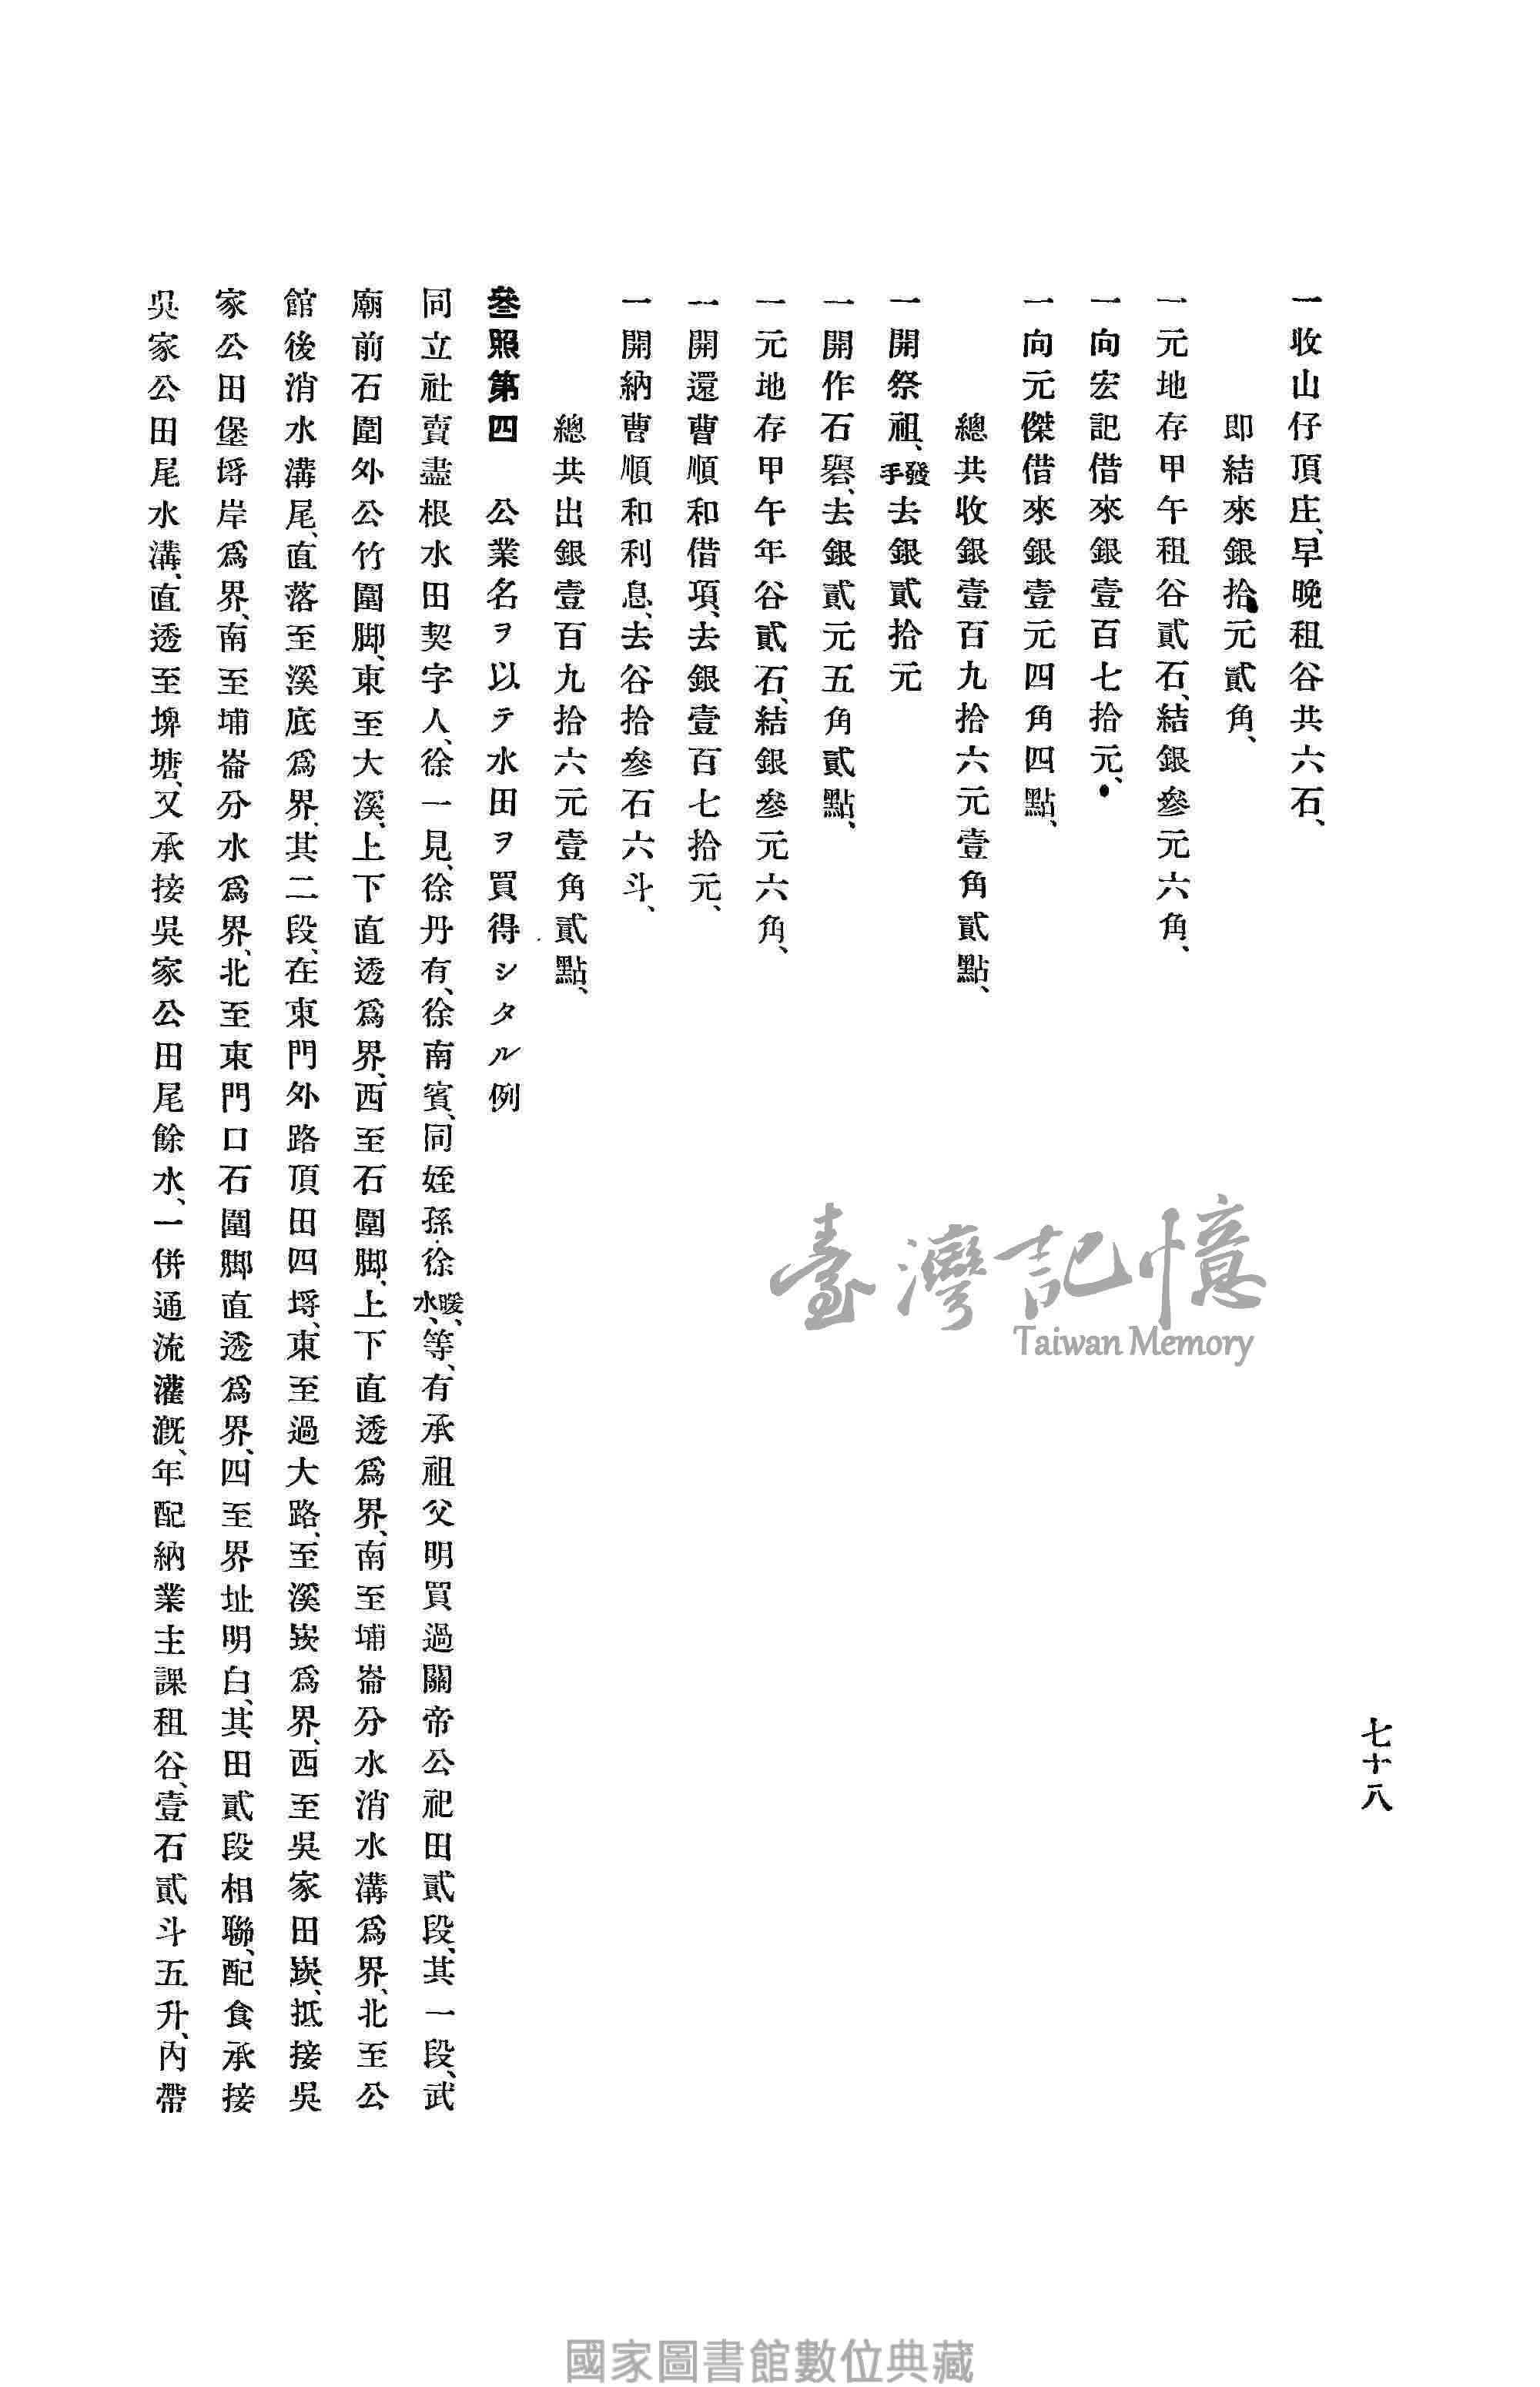 七十八
一收山仔頂庄、早晚租谷共六石、
即結來銀拾元貳角、
一元地存甲午租谷貳石、結銀參元六角、
一向宏記借來銀壹百七拾元、
一向元傑借來銀壹元四角四點、
總共收銀壹百九拾六元壹角貳點、
一開祭祖、發手去銀貳拾元
一開作石礐、去銀貳元五角貳點、
一元地存甲午年谷貳石、結銀參元六角、
一開還曹順和借項、去銀壹百七拾元、
一開納曹順和利息、去谷拾參石六斗、
總共出銀壹百九拾六元壹角貳點、
參照第四 公業名ヲ以テ水田ヲ買得シタル例
同立社賣盡根水田契字人、徐一見、徐丹有、徐南賓、同姪孫徐暖、水、等、有承祖父明買過關帝公祀田貳段、其一段、武
廟前石圍外公竹圍脚、東至大溪、上下直透爲界、西至石圍脚、上下直透爲界、南至埔崙分水消水溝爲界、北至公
館後消水溝尾、直落至溪底爲界、其二段、在東門外路頂田四埒、東至過大路、至溪崁爲界、西至吳家田崁、抵接吳
家公田堡埒岸爲界、南至埔崙分水爲界、北至東門口石圍脚直透爲界、四至界址明白、其田貳段相聯、配食承接
吳家公田尾水溝、直透至埤塘、又承接吳家公田尾餘水、一併通流灌漑、年配納業主課租谷、壹石貳斗五升、內帶
臺灣記憶
Taiwan Memory
國家圖書館數位典藏